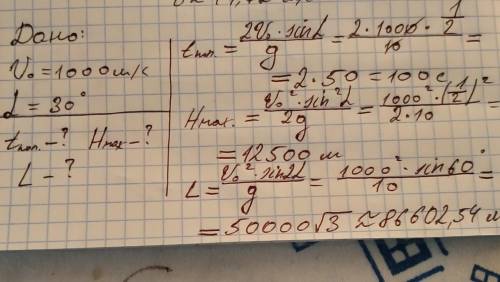 Дано:
V₀ = 1000 м/с
L = 30°
tпол. - ? Hmax - ?
L - ?
tпол. = 2V₀ · sinL / g = 2 · 1000 · 1/2 / 10 =
= 2 · 50 = 100 с
Hmax. = V₀² · sin²L / 2g = 1000² · (1/2)² / 2 · 10 =
= 12500 м
L = V₀² · sin2L / g = 1000² · sin60° / 10 =
= 50000√3 ≈ 86602,54 м